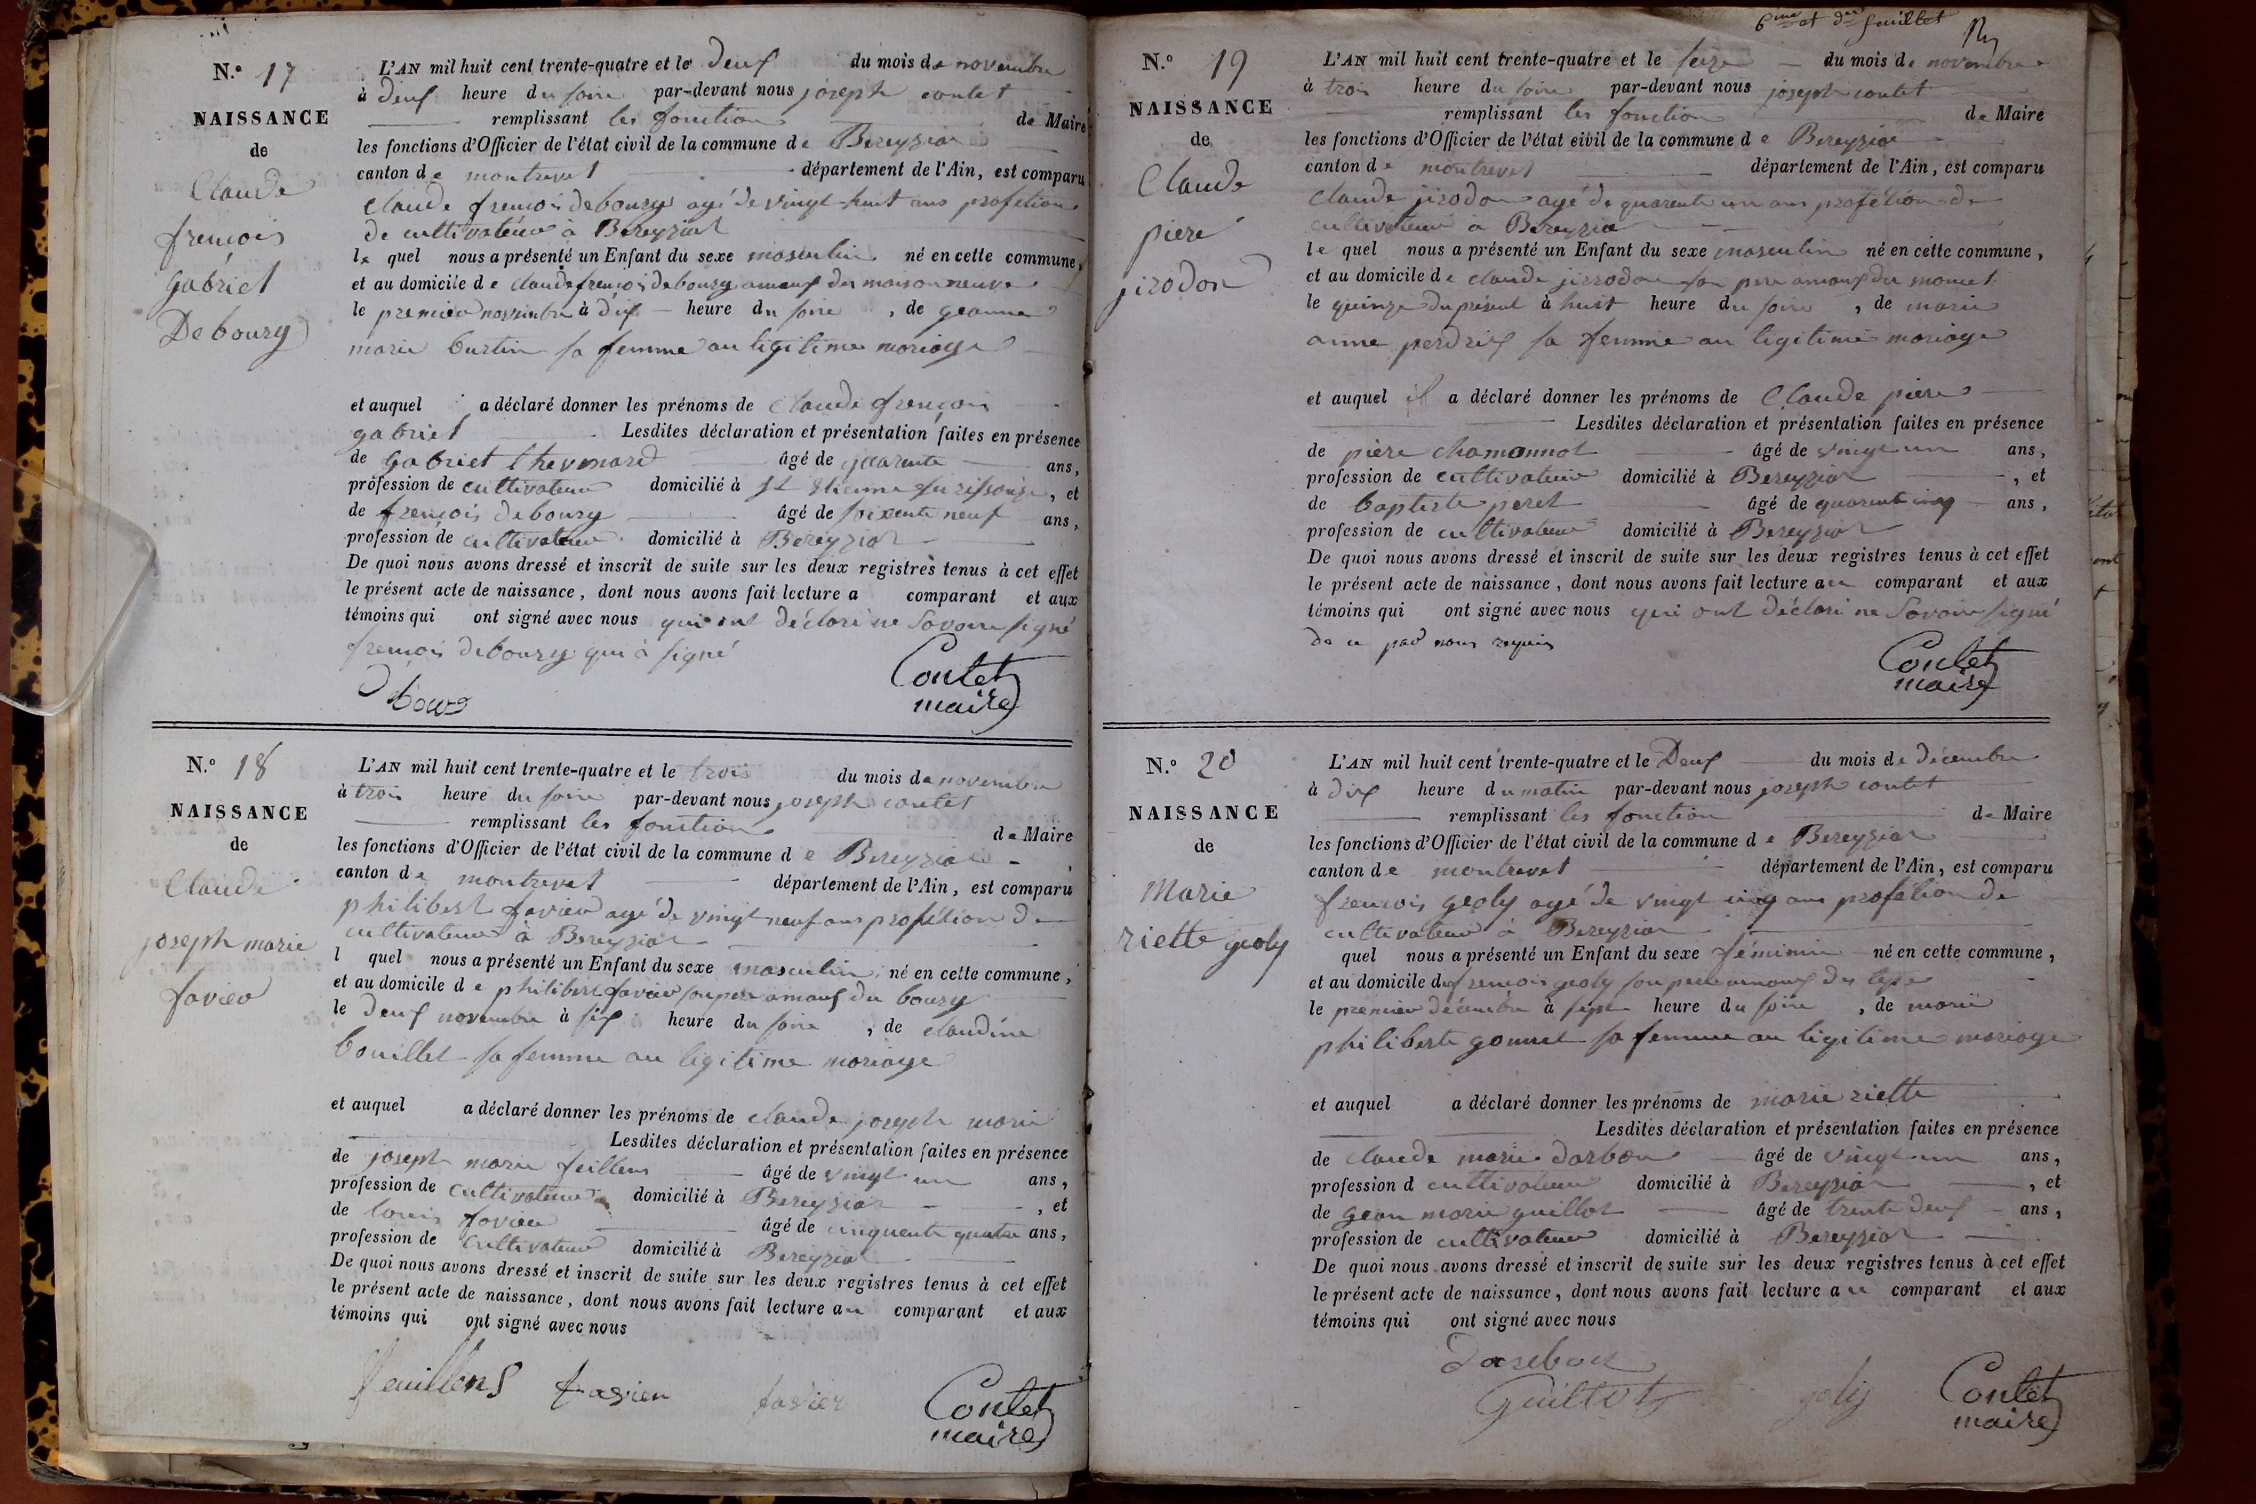 N.° 17
NAISSANCE
de
Claude
frencois
gabriel
Debourg
L'AN mil huit cent trente-quatre et le deux du mois de novembre
à deux heure du soire par-devant nous joseph contet
remplissant les fonction de Maire
les fonctions d'Officier de l'état civil de la commune de Bereyziat
canton de montrevel département de l'Ain, est comparu
claude frencois debourg agé de vingt-huit ans profetion
de cultivateur à Bereyziat
le quel nous a présenté un Enfant du sexe masculin né en cette commune,
et au domicile de claude frencois debourg amaux de maison neuve
le premier novembre à dix heure du soire, de geanne
marie burtin sa femme au ligitime mariage
et auquel a déclaré donner les prénoms de claude frencois
gabriel Lesdites déclaration et présentation faites en présence
de gabriel thevenard âgé de quarente ans,
profession de cultivateur domicilié à St Etienne sur rissouze, et
de frencois debourg âgé de soixente neuf ans,
profession de cultivateur domicilié à Bereyziat
De quoi nous avons dressé et inscrit de suite sur les deux registres tenus à cet effet
le présent acte de naissance, dont nous avons fait lecture a comparant et aux
témoins qui ont signé avec nous qui ont déclaré ne savoir signé
frencois debourg qui à signé
Contet
maire
N.° 18
NAISSANCE
de
Claude
joseph marie
favier
L'AN mil huit cent trente-quatre et le trois du mois de novembre
à trois heure du soire par-devant nous joseph contet
remplissant les fonction de Maire
les fonctions d'Officier de l'état civil de la commune de Bereyziat
canton de montrevel département de l'Ain, est comparu
philibert favier agé de vingt neuf ans profetion de
cultivateur à Bereyziat
l quel nous a présenté un Enfant du sexe masculin né en cette commune,
et au domicile de philibert favier son pere amaux du bourg
le deux novembre à six heure du soire, de claudine
bouillet sa femme au legitime mariage
et auquel a déclaré donner les prénoms de claude joseph marie
Lesdites déclaration et présentation faites en présence
de joseph marie feillens âgé de vingt un ans,
profession de cultivateur domicilié à Bereyziat, et
de louis favier âgé de cinquente quatre ans,
profession de cultivateur domicilié à Bereyziat
De quoi nous avons dressé et inscrit de suite sur les deux registres tenus à cet effet
le présent acte de naissance, dont nous avons fait lecture au comparant et aux
témoins qui ont signé avec nous
feuillens favier favier
Contet
maire
6me et der feuillet
N.° 19
NAISSANCE
de
Claude
piere
jirodon
L'AN mil huit cent trente-quatre et le seize du mois de novembre
à trois heure du soire par-devant nous joseph contet
remplissant les fonction de Maire
les fonctions d'Officier de l'état civil de la commune de Bereyziat
canton de montrevel département de l'Ain, est comparu
claude jirodon agé de quarente un ans profetion de
cultivateur à Bereyziat
le quel nous a présenté un Enfant du sexe masculin né en cette commune,
et au domicile de claude jirrodon son pere amaux du
le quinze du présent à huit heure du soire, de marie
anne perdrix sa femme au legitime mariage
et auquel il a déclaré donner les prénoms de Claude piere
Lesdites déclaration et présentation faites en présence
de piere chamonnot âgé de vingt un ans,
profession de cultivateur domicilié à Bereyziat, et
de baptiste peret âgé de quarente cinq ans,
profession de cultivateur domicilié à Bereyziat
De quoi nous avons dressé et inscrit de suite sur les deux registres tenus à cet effet
le présent acte de naissance, dont nous avons fait lecture au comparant et aux
témoins qui ont signé avec nous qui ont déclaré ne savoir signé
de ce par nous requis
Contet
maire
N.° 20
NAISSANCE
de
Marie
riette geoly
L'AN mil huit cent trente-quatre et le Deux du mois de décembre
à dix heure du matin par-devant nous joseph contet
remplissant les fonction de Maire
les fonctions d'Officier de l'état civil de la commune de Bereyziat
canton de montrevel département de l'Ain, est comparu
frencois geoly agé de vingt cinq ans profetion de
cultivateur à Bereyziat
quel nous a présenté un Enfant du sexe féminin né en cette commune,
et au domicile du frencois geoly son pere amaux
le premier décembre à sept heure du soire, de marie
philiberte gonnet sa femme au ligitime mariage
et auquel a déclaré donner les prénoms de marie riette
Lesdites déclaration et présentation faites en présence
de claude marie darbon âgé de vingt un ans,
profession d cultivateur domicilié à Bereyziat, et
de gean marie guillot âgé de trente deux ans,
profession de cultivateur domicilié à Bereyziat
De quoi nous avons dressé et inscrit de suite sur les deux registres tenus à cet effet
le présent acte de naissance, dont nous avons fait lecture au comparant et aux
témoins qui ont signé avec nous
Darebon
Guillot joly
Contet
maire